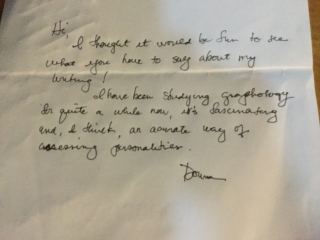 Hi,
I thought it would be fun to see
what you have to say about my
writing!
I have been studying graphology
for quite a while now, it's fascinating
and, I think, an accurate way of
assessing personalities.